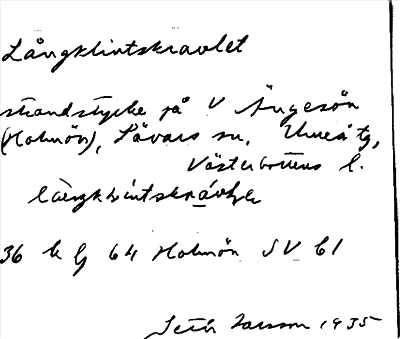 Långklintskravlet
strandstycke på V Ängesön
(Holmön), Sävars sn, Umeå tg,
Västerbottens l.
36 k G 64 Holmön SV bl
Seth Larsson 1935